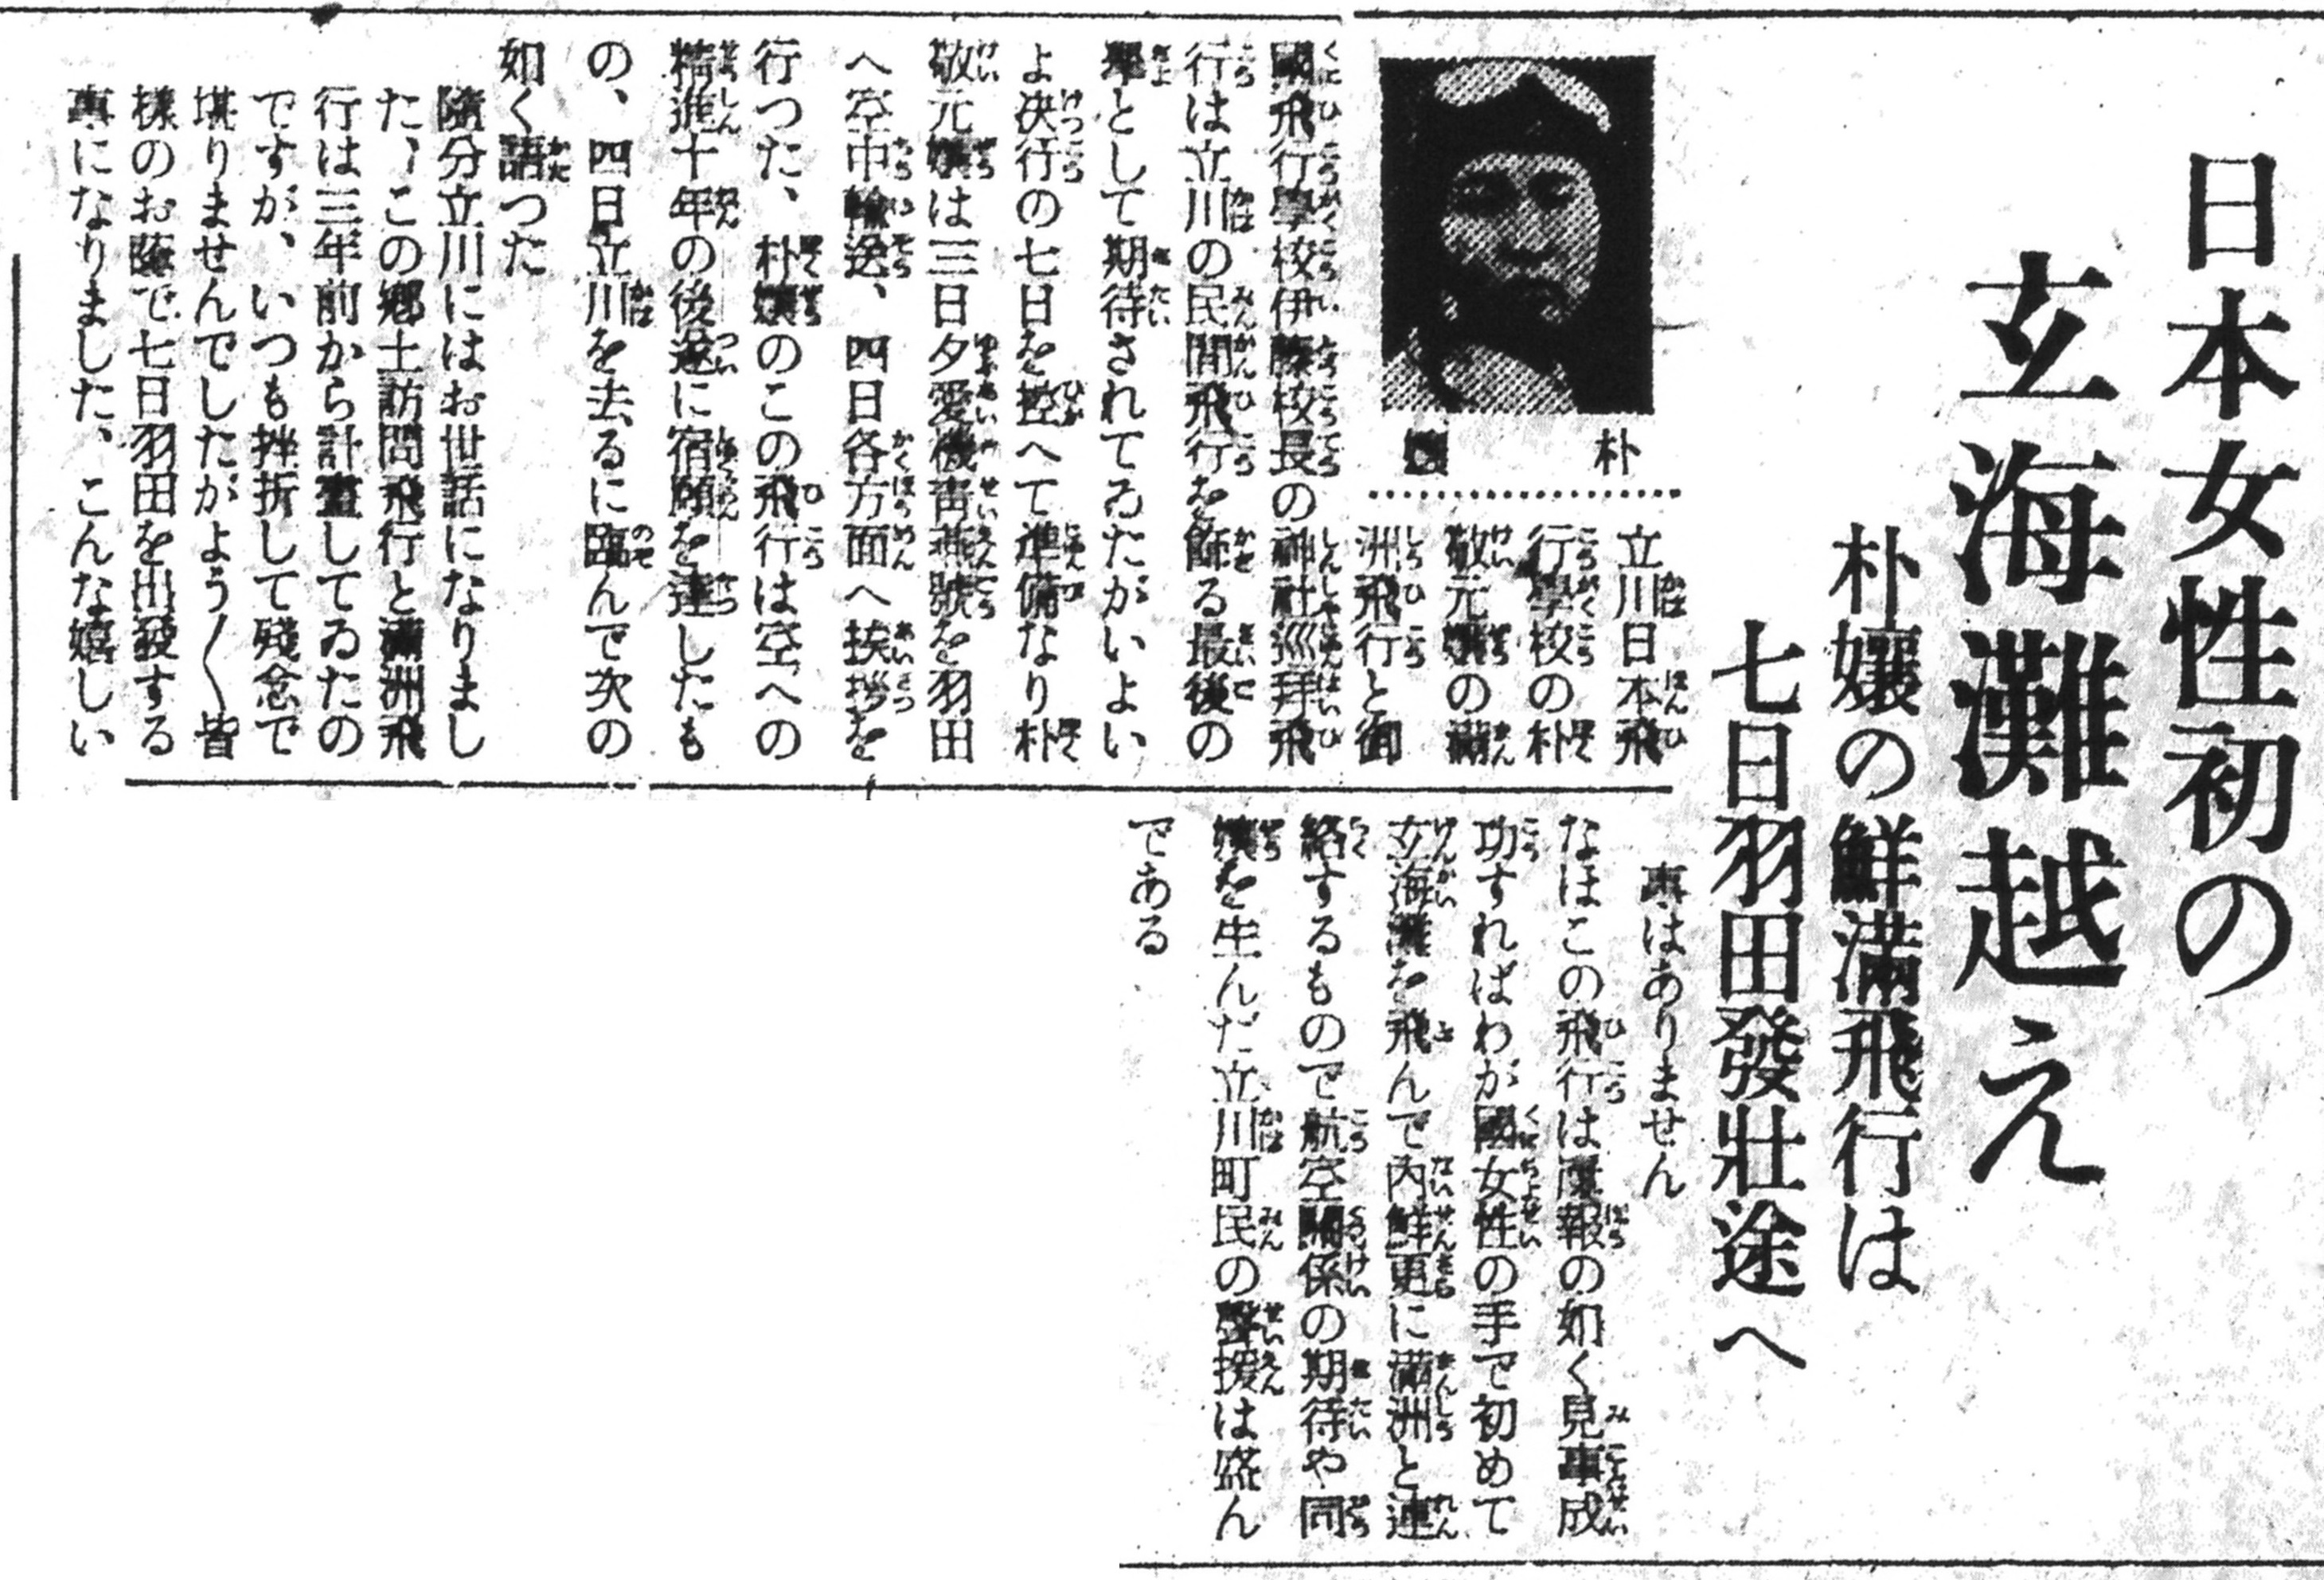 日本女性初の
玄海灘越え
朴孃の鮮滿飛行は
七日羽田發壯途へ
朴孃
立川日本飛
行學校の朴
敬元孃の滿
洲飛行と御
國飛行學校伊藤校長の神社巡拜飛
行は立川の民間飛行を飾る最後の
擧として期待されてゐたがいよい
よ決行の七日を控へて準備なり朴
敬元孃は三日夕愛機靑燕號を羽田
へ空中輸送、四日各方面へ挨拶を
行つた、朴孃のこの飛行は空への
精進十年の後遂に宿願を達したも
の、四日立川を去るに臨んで次の
如く語つた
隨分立川にはお世話になりまし
た、この鄕土訪問飛行と滿洲飛
行は三年前から計畫してゐたの
ですが、いつも挫折して殘念で
堪りませんでしたがよう〱皆
樣のお蔭で七日羽田を出發する
事になりました、こんな嬉しい
事はありません
なほこの飛行は度報の如く見事成
功すればわが國女性の手で初めて
玄海灘を飛んで內鮮更に滿洲と連
絡するもので航空關係の期待や同
孃を生んだ立川町民の聲援は盛ん
である